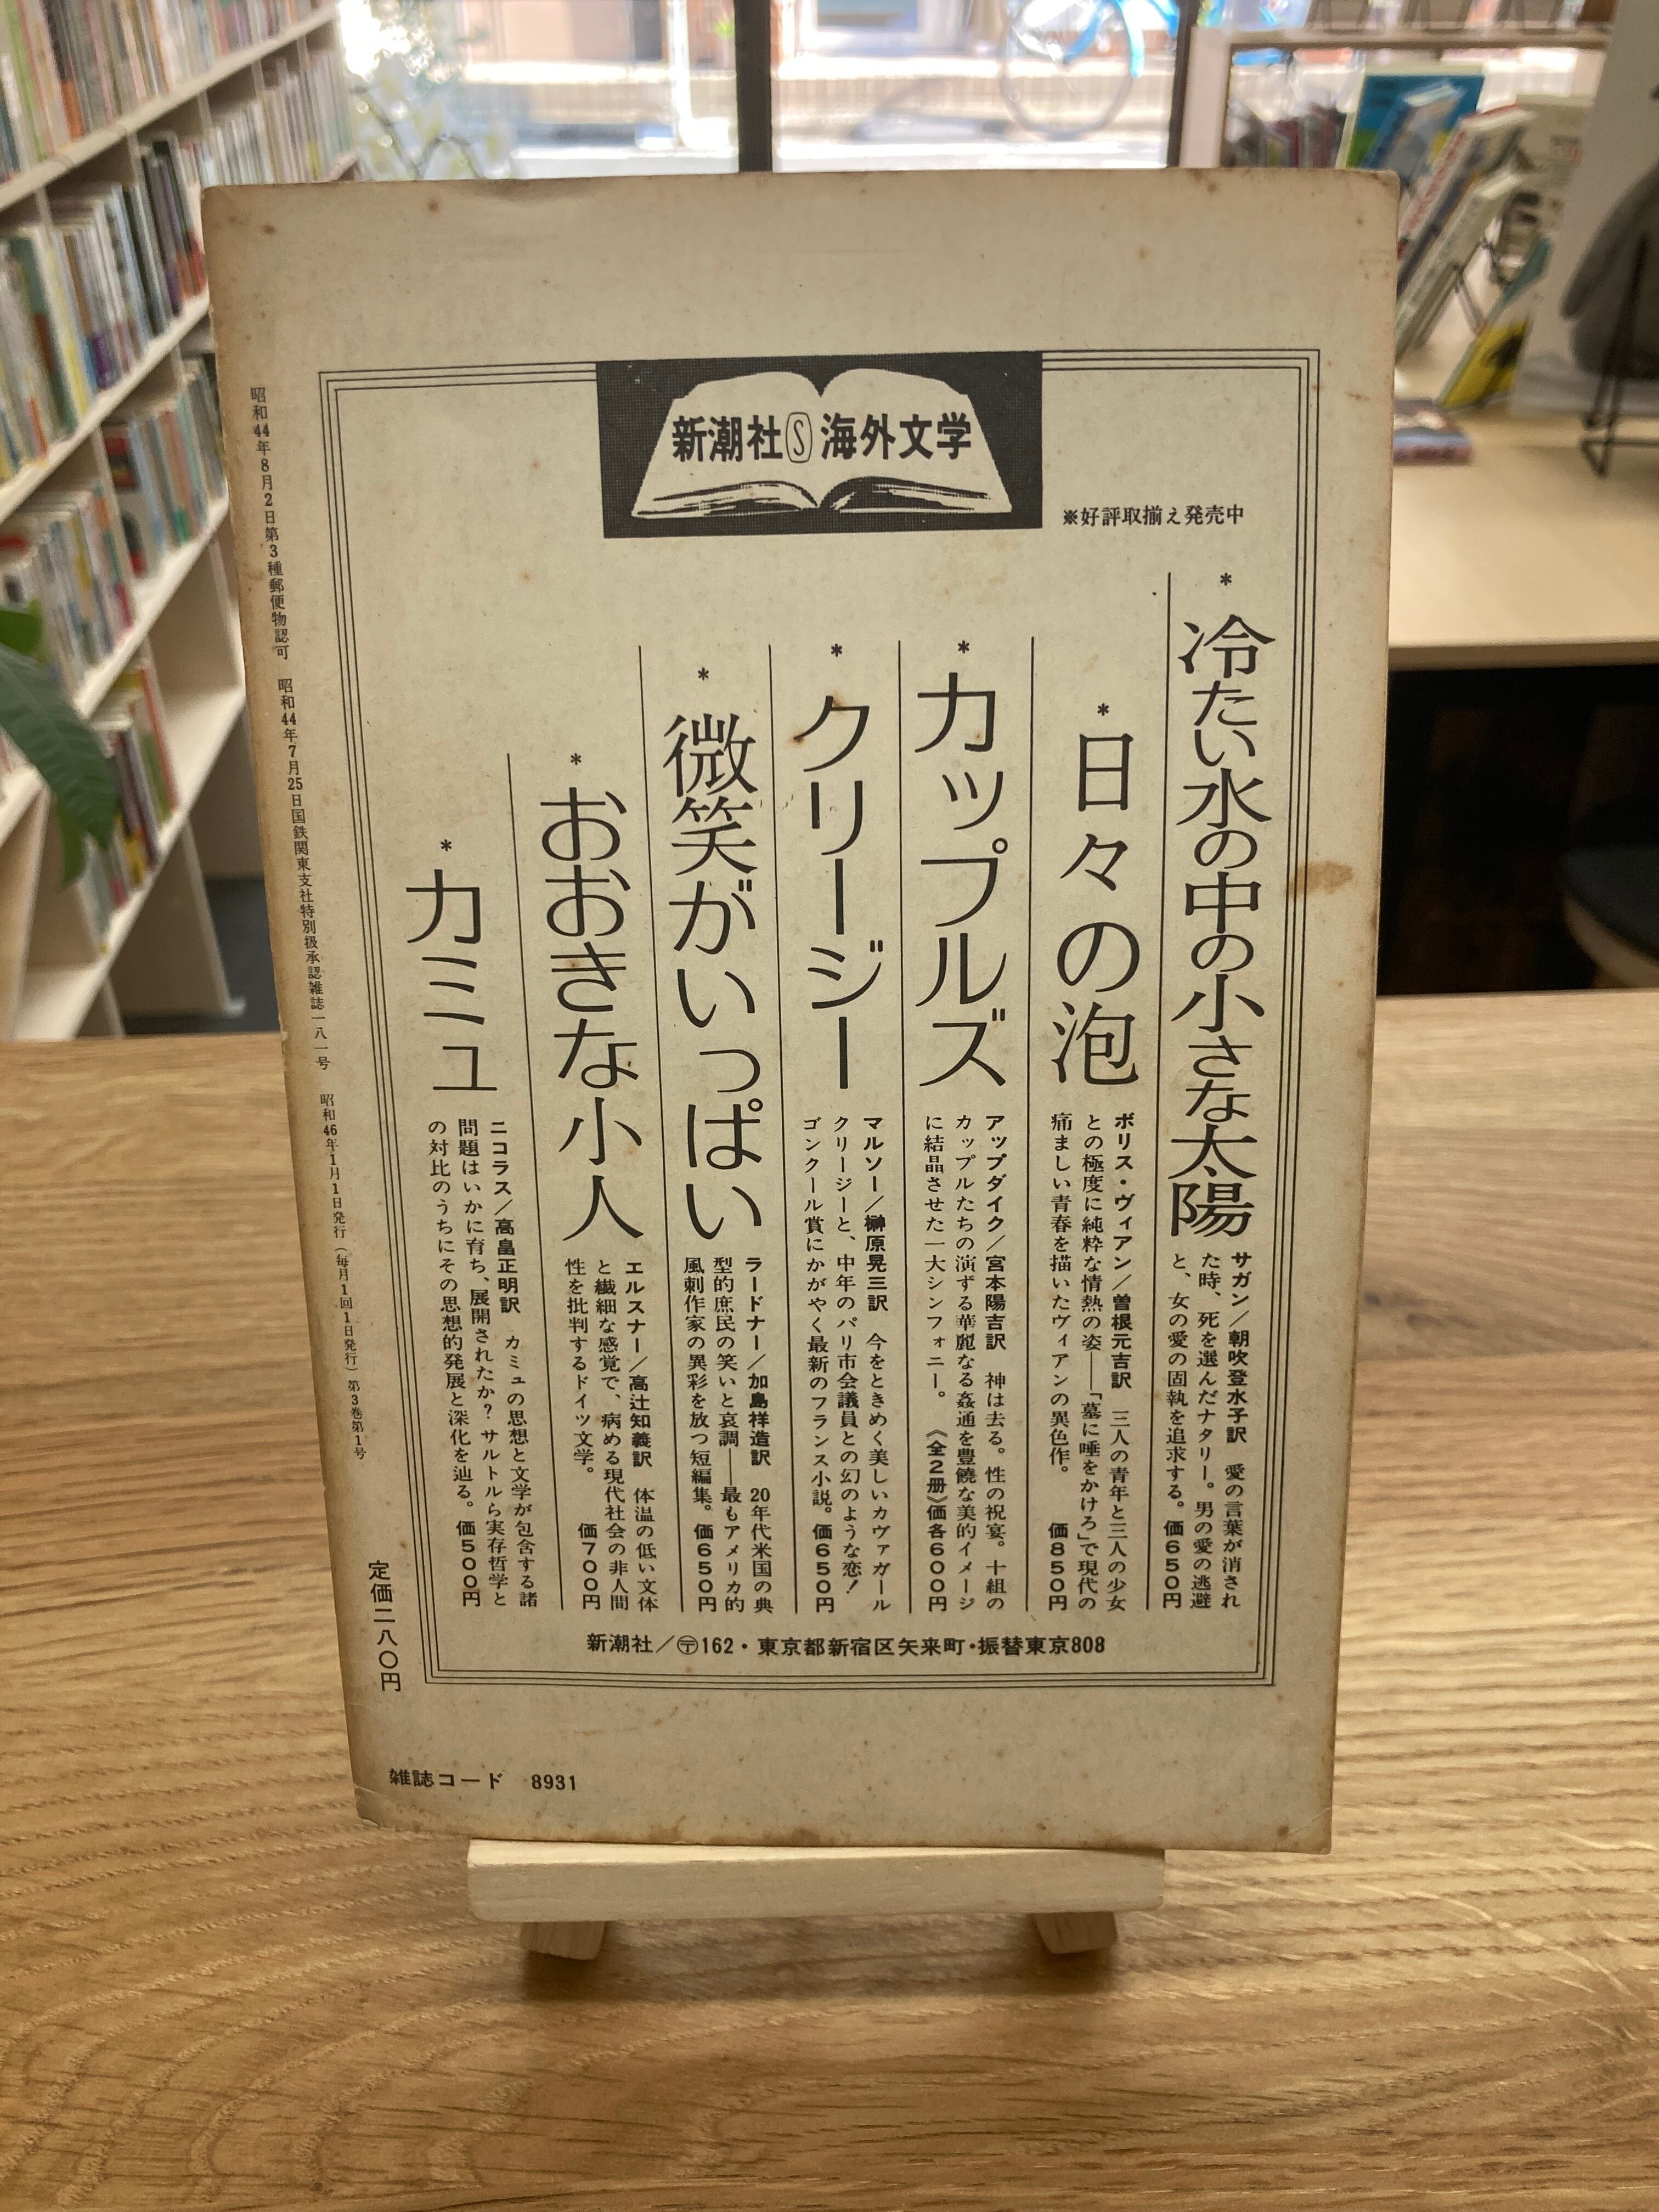 新潮社Ⓢ海外文学
※好評取揃え発売中
*冷たい水の中の小さな太陽
サガン／朝吹登水子訳　愛の言葉が消され
た時、死を選んだナタリー。男の愛の逃避
と、女の愛の固執を追求する。価650円
*日々の泡
ボリス・ヴィアン／曽根元吉訳　三人の青年と三人の少女
との極度に純粋な情熱の姿——「墓に唾をかけろ」で現代の
痛ましい青春を描いたヴィアンの異色作。価850円
*カップルズ
アップダイク／宮本陽吉訳　神は去る。性の祝宴。十組の
カップルたちの演ずる華麗なる姦通を豊饒な美的イメージ
に結晶させた一大シンフォニー。《全2冊》価各600円
*クリージー
マルソー／榊原晃三訳　今をときめく美しいカヴァガール
クリージーと、中年のパリ市会議員との幻のような恋！
ゴンクール賞にかがやく最新のフランス小説。価650円
*微笑がいっぱい
ラードナー／加島祥造訳　20年代米国の典
型的庶民の笑いと哀調——最もアメリカ的
風刺作家の異彩を放つ短編集。価650円
*おおきな小人
エルスナー／高辻知義訳　体温の低い文体
と繊細な感覚で、病める現代社会の非人間
性を批判するドイツ文学。価700円
*カミュ
ニコラス／高畠正明訳　カミュの思想と文学が包含する諸
問題はいかに育ち、展開されたか？サルトルら実存哲学と
の対比のうちにその思想的発展と深化を辿る。価500円
新潮社／〒162・東京都新宿区矢来町・振替東京808
昭和44年8月2日第3種郵便物認可　昭和44年7月25日国鉄関東支社特別扱承認雑誌一八一号　昭和46年1月1日発行（毎月1回1日発行）第3巻第1号
定価二八〇円
雑誌コード　8931